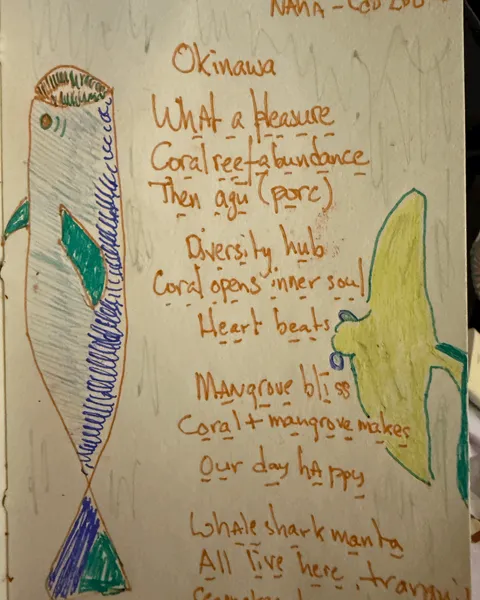 Okinawa
What a pleasure
Coral reef abundance
Then agu (porc)
Diversity hub
Coral opens inner soul
Heart beats
Mangrove bliss
Coral + mangrove makes
Our day happy
Whale shark manta
All live here,